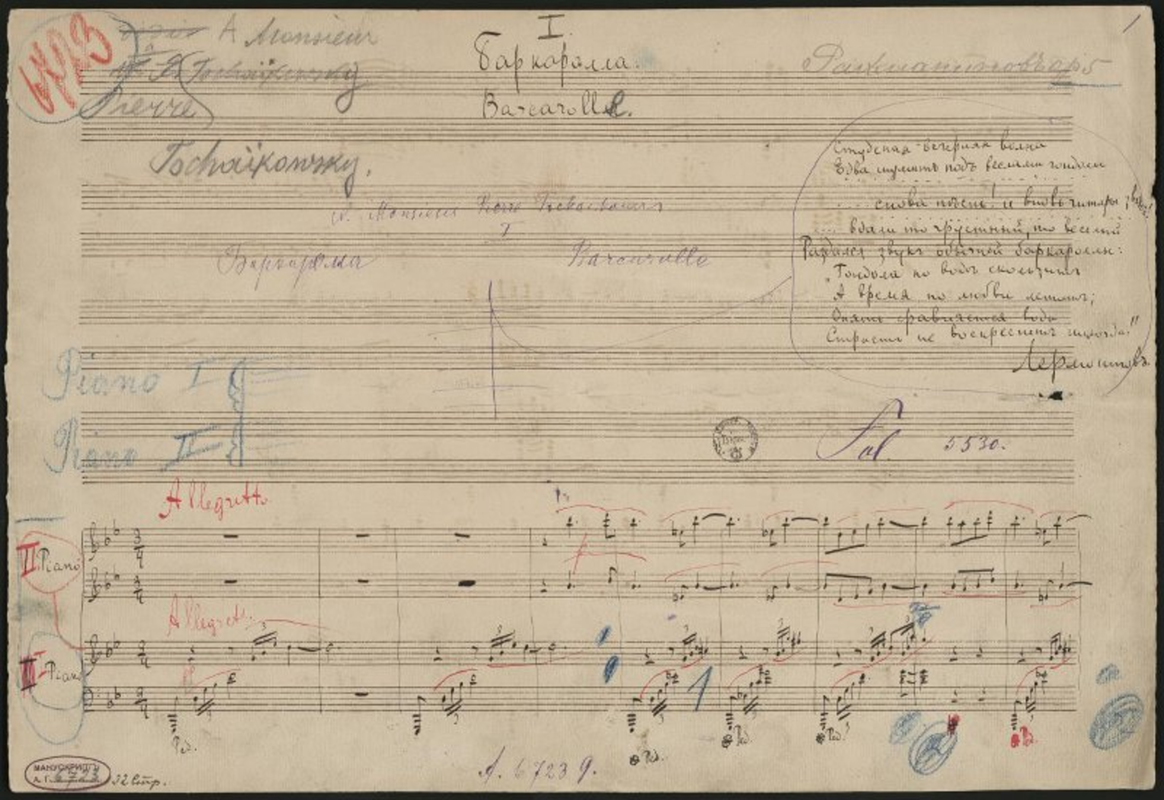 1
6723
A Monsieur
P. Tschaïkowsky
Pierre
Tschaïkowsky.
I.
Баркаролла.
Barcarolle.
Рахманиновъ op 5
A Monsieur Pierre Tschaïkowsky
I
Баркаролла Barcarolle
волна
Едва шумитъ подъ веслами гондолы
снова пѣснь! и вновь гитары
вдали то грустный, то веселый
Раздался звукъ обычной баркароллы:
"Гондола по водѣ скользитъ
А время по любви летитъ;
Опять сравняется вода
Страсть не воскреснетъ никогда."
Лермонтовъ
Piano I
Piano II
5530.
Allegretto
II Piano
Allegretto
I Piano
3
4
Ped.
Ped.
Ped.
Ped.
Ped.
МАНУСКРИПТЫ
А. Г. 6723
32 стр.
A. 6723 g.